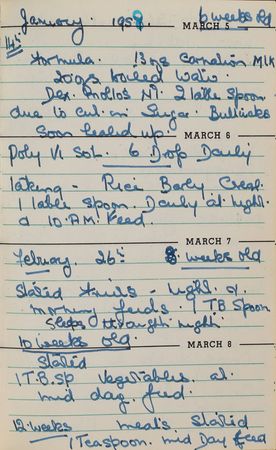 January. 1958 6 weeks old
MARCH 5
14th
Formula. 13 ozs Carnation Milk
20 ozs boiled water.
Dex. Maltos No. 1 2 table spoon
due to cut in Sugar. Buttocks
Soon healed up.
MARCH 6
Poly Vi Sol. 6 Drop Daily
taking - Rice Barly Creal.
1 table spoon. Daily at night.
a 10. P.M. Feed.
MARCH 7
February. 26th 8 weeks old
Started Fruits - night. or
morning feeds. 1 TB Spoon
Sleeps through night.
10 weeks old.
MARCH 8
Started
1 T.B.Sp Vegetables at
mid day feed.
12 weeks meats Started
1 Teaspoon. mid Day feed